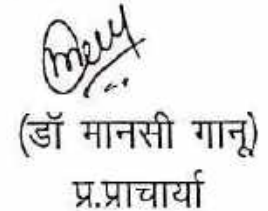 (डॉ मानसी गानू)
प्र.प्राचार्या